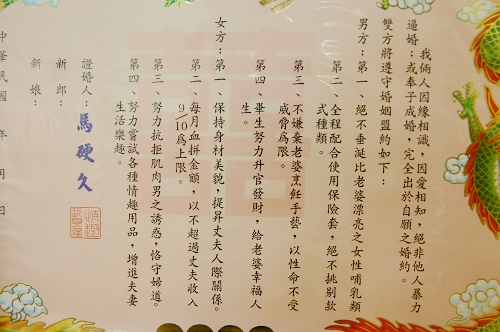 我倆人因緣相識，因愛相知，絕非他人暴力
逼婚；或奉子成婚，完全出於自願之婚約。
雙方將遵守婚姻盟約如下：
男方：第一、絕不垂涎比老婆漂亮之女性哺乳類
第二、全程配合使用保險套，絕不挑剔款
式種類。
第三、不嫌棄老婆烹飪手藝，以性命不受
威脅為限。
第四、畢生努力升官發財，給老婆幸福人
生。
女方：第一、保持身材美貌，提昇丈夫人際關係。
第二、每月血拼金額，以不超過丈夫收入
9/10為上限。
第三、努力抗拒肌肉男之誘惑，恪守婦道。
第四、努力嘗試各種情趣用品，增進夫妻
生活樂趣。
證婚人：馬硬久
新郎：
新娘：
中華民國 年 月 日